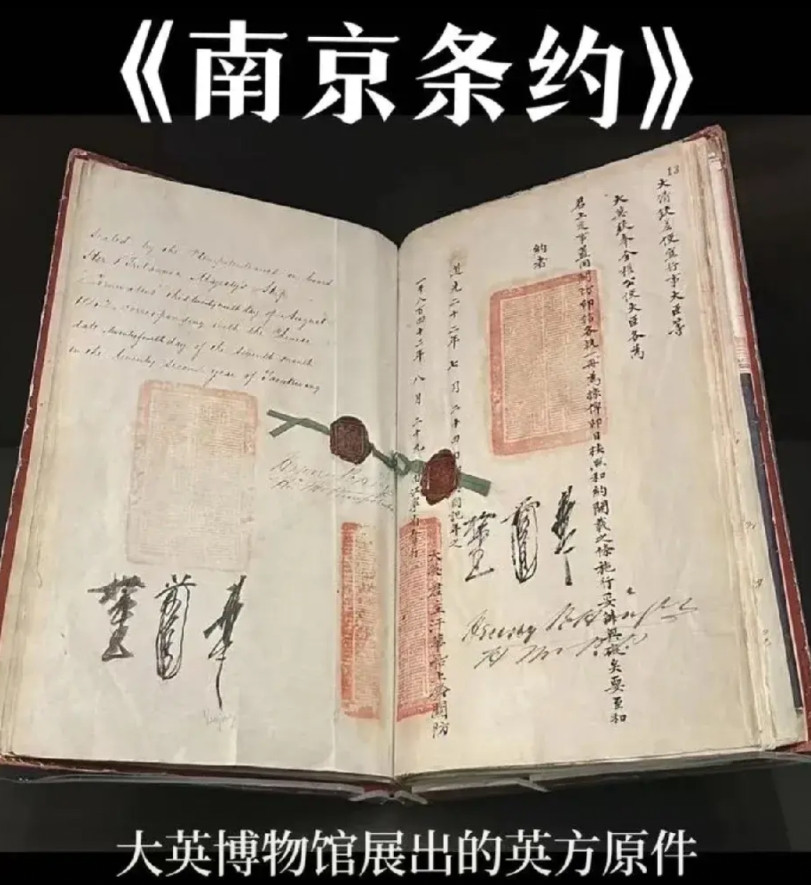 《南京条约》
Sealed by the Plenipotentiaries on board
Her Britannic Majesty's Ship
Cornwallis this twenty ninth day of August
1842 corresponding with the Chinese
date twenty fourth day of the seventh month
in the twenty second year of Taoukwang
13
大清欽差便宜行事大臣等
大英欽奉全權公使大臣各為
君上定事蓋用關防印信各執一冊為據俾即日按照和約開載之條施行妥辦無礙矣要至和
約者
道光二十二年七月二十四日即英國記年之
一千八百四十二年八月二十九日
大英君主汗華船上鈐關防
Henry Pottinger
大英博物馆展出的英方原件